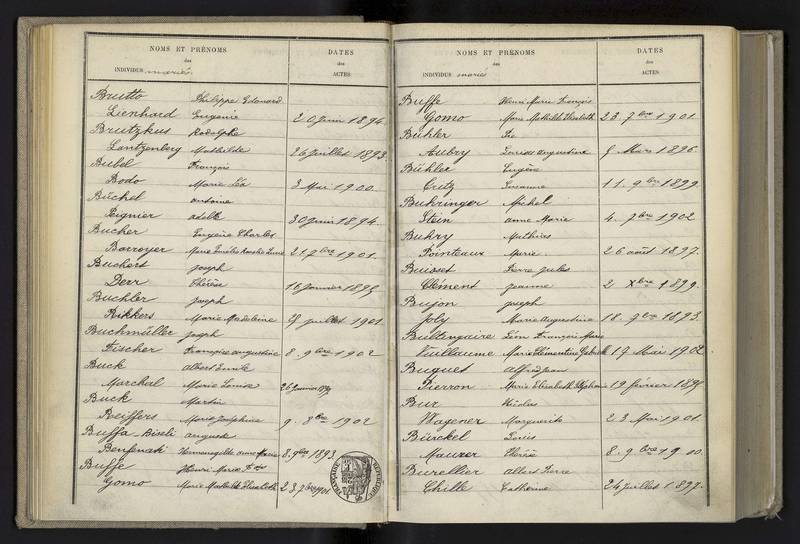 NOMS ET PRÉNOMS
des
INDIVIDUS mariés.
DATES
des
ACTES
Brutto Philippe Edouard
Lienhard Eugénie 20 Juin 1894
Brutzkus Rodolphe
Lantzenberg Mathilde 26 Juillet 1893
Bubel François
Bodo Marie Léa 3 Mai 1900
Büchel Antoine
Peignier Adèle 30 Juin 1894
Bucher Eugène Charles
Barroyer Marie 21 7bre 1901
Buchert Joseph
Derr Thérèse 16 Janvier 1895
Buchler Joseph
Rikkers Marie Madeleine Juillet 1901
Buchmüller Joseph
Fischer Françoise Augustine 8. 9bre 1902
Buck Albert Emile
Marchal Marie Louise 26 Janvier
Buck Martin
Reiffers Marie Joséphine 9. 8bre 1902
Buffa-Biseli August
Bensenati Hermenegilde Anne Marie 8. 9bre 1893
Buffe Henri Marie Fois
Gomo Marie Mathilde Elisabeth 23. 7bre 1901
NOMS ET PRÉNOMS
des
INDIVIDUS mariés
DATES
des
ACTES
Buffe Henri Marie François
Gomo Marie Mathilde Elisabeth 23. 7bre 1901.
Bühler
Aubry Louise Augustine Mars 1896
Bühler Eugène
Critz Susanne 11. 9bre 1899
Buhringer Michel
Stein Anne Marie 4. 9bre 1902
Buhry Mathias
Pointeaux Marie 26 août 1897.
Buisset Pierre Jules
Clément Jeanne 2 Xbre 1899.
Bujon Joseph
Joly Marie Augustine 18. 9bre 1893.
Bultingaire Léon François Marie
Vuillaume Marie Clémentine Gabrielle 17 Mai 1902
Buquet Alfred Jean
Pierron Marie Elisabeth Stéphanie 12 février 1895
Bur Nicolas
Wagener Marguerite 23 Mai 1901.
Bürckel Louis
Maurer Thérèse 8. 9bre 1900.
Burellier Albert Pierre
Chille Catherine 24 Juillet 1897.